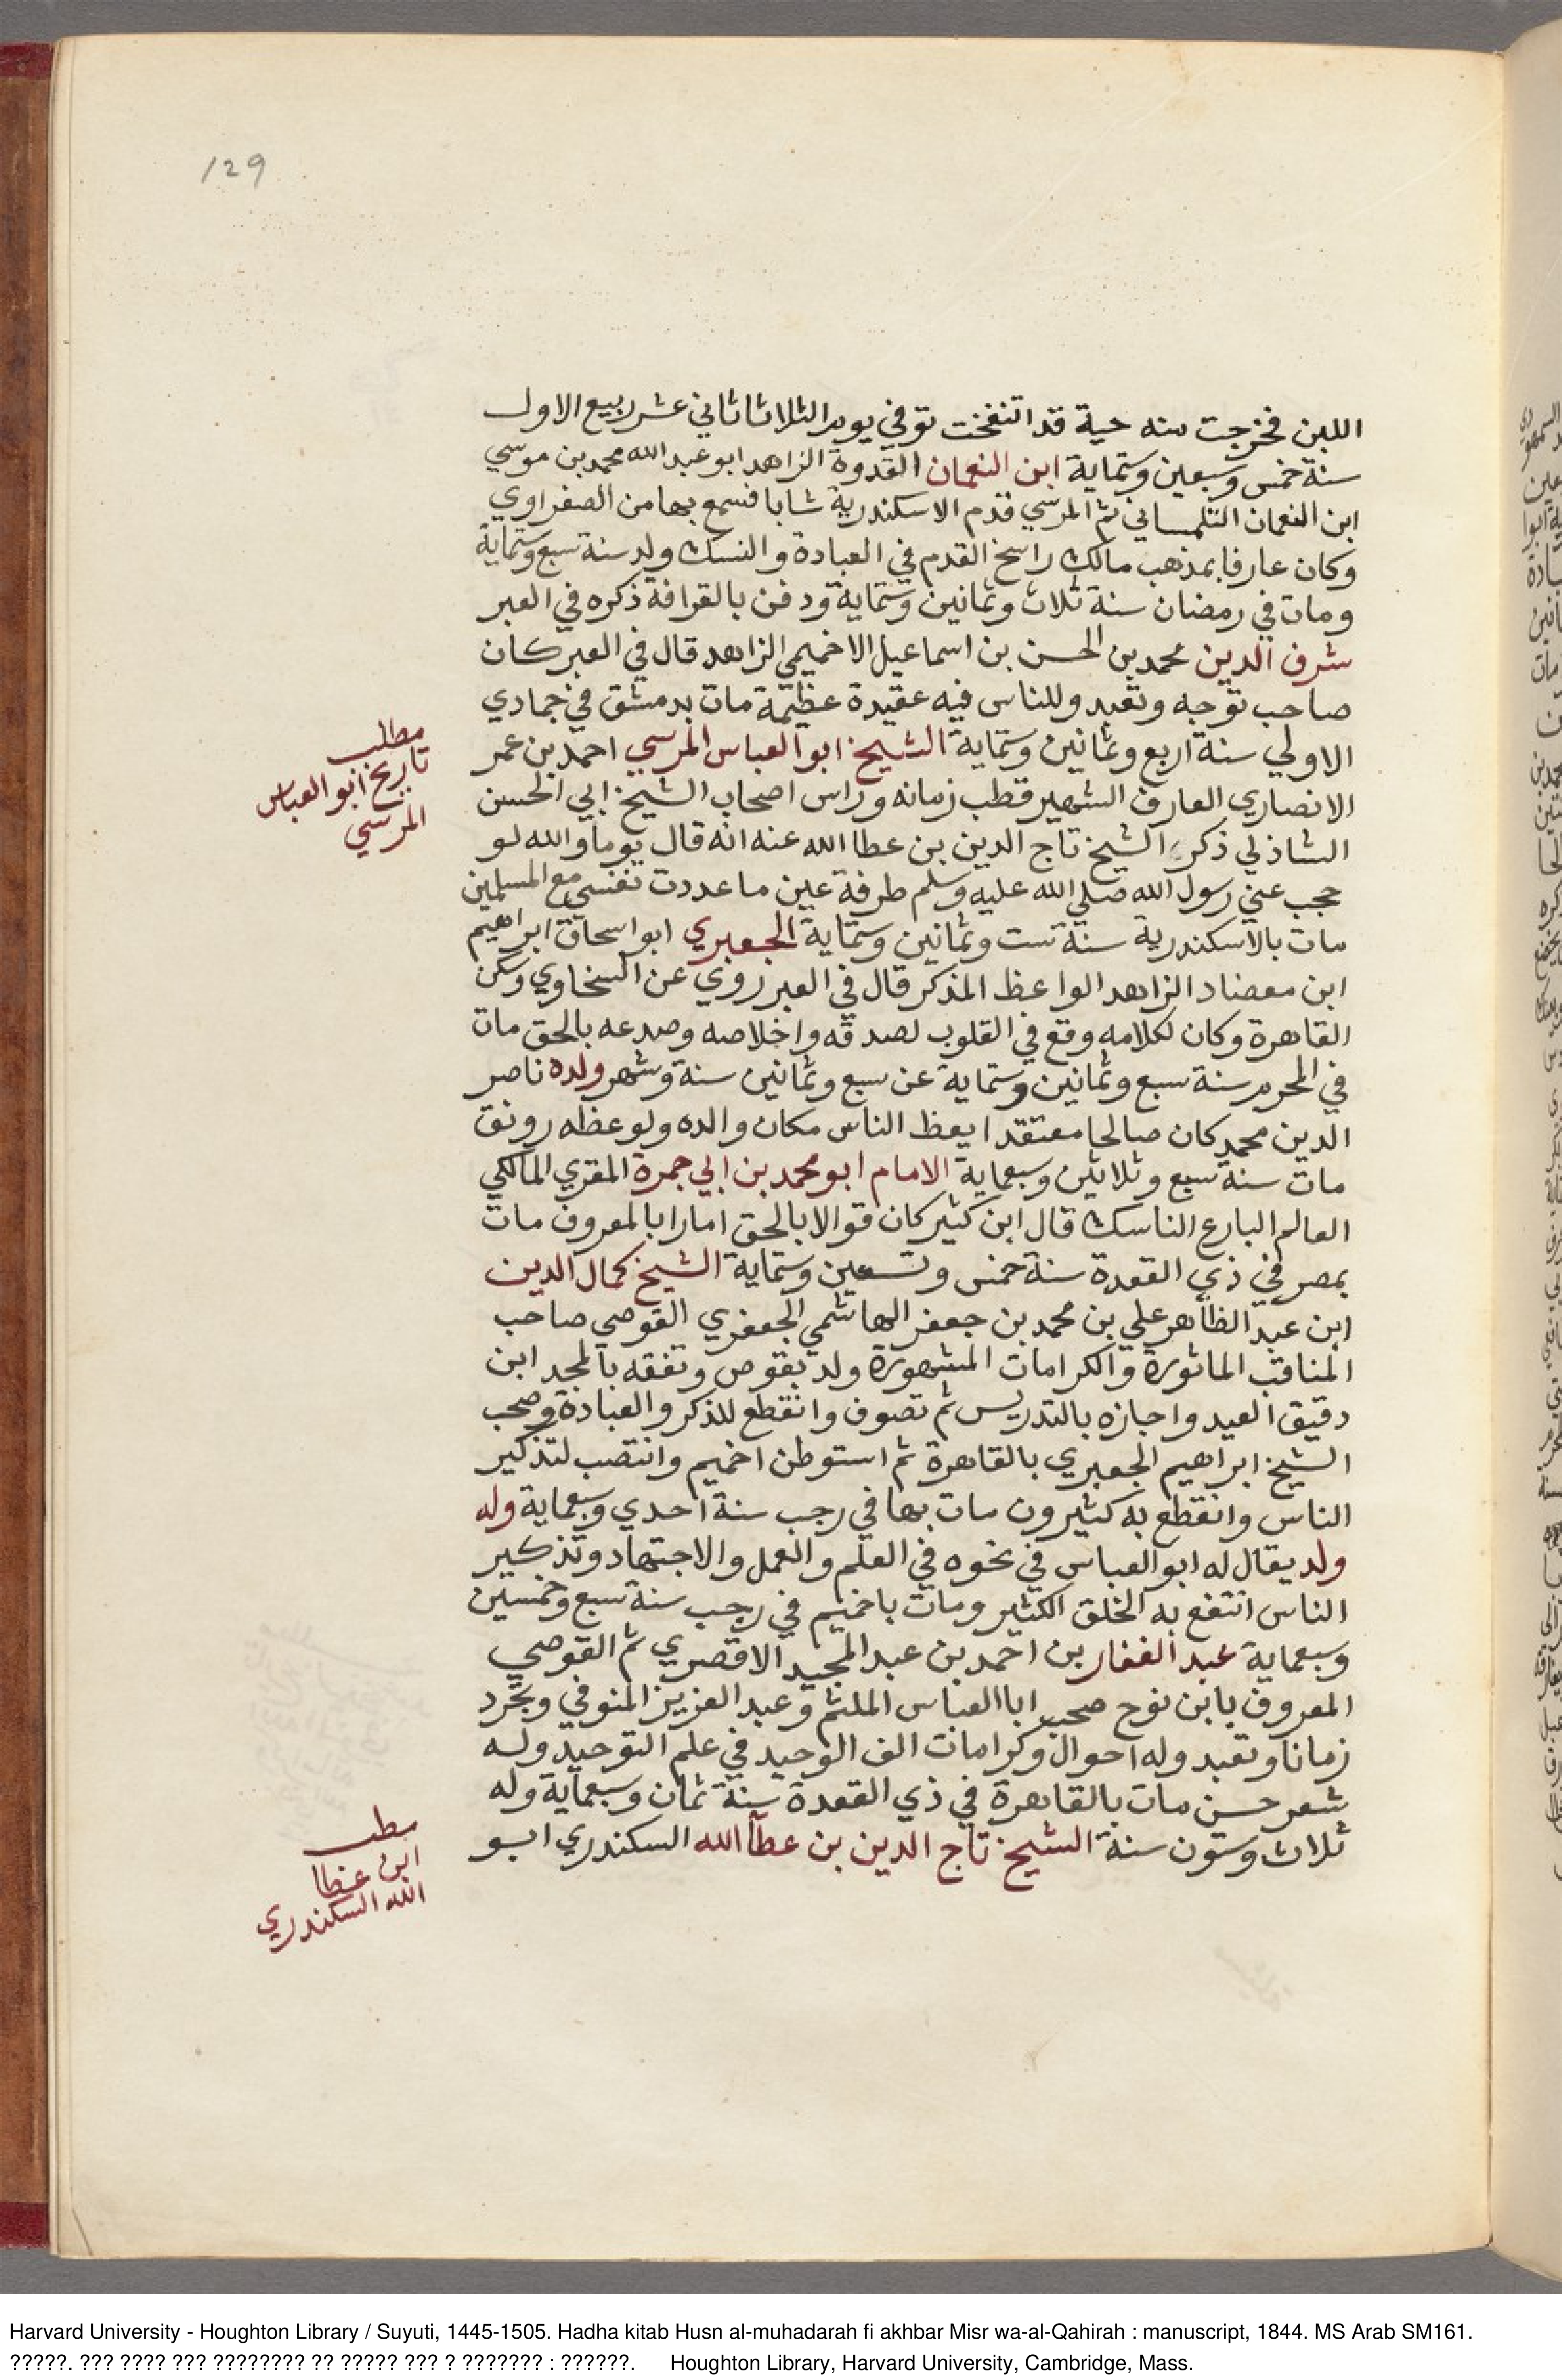 129
اللبن فخرجت منه حية قد انتفخت توفي يوم الثلاثا ثاني عشر ربيع الاول
سنة خمس وسبعين وستماية ابن النعمان القدوة الزاهد ابو عبد الله محمد بن موسي
ابن النعمان التلمساني ثم المرسي قدم الاسكندرية شابا فسمع بها من الصفراوي
وكان عارفا بمذهب مالك راسخ القدم في العبادة والنسك ولد سنة سبع وستماية
ومات في رمضان سنة ثلاث وثمانين وستماية ودفن بالقرافة ذكره في العبر
شرف الدين محمد بن الحسن بن اسماعيل الاخميمي الزاهد قال في العبر كان
صاحب توجه وتعبد وللناس فيه عقيدة عظيمة مات بدمشق في جمادي
الاولي سنة اربع وثمانين وستماية الشيخ ابو العباس المرسي احمد بن عمر
الانصاري العارف الشهير قطب زمانه وراس اصحاب الشيخ ابي الحسن
الشاذلي ذكر الشيخ تاج الدين بن عطا الله عنه انه قال يوما والله لو
حجب عني رسول الله صلي الله عليه وسلم طرفة عين ما عددت نفسي مع المسلمين
مات بالاسكندرية سنة ست وثمانين وستماية الجعبري ابو اسحاق ابراهيم
ابن معضاد الزاهد الواعظ المذكر قال في العبر روي عن السخاوي وسكن
القاهرة وكان لكلامه وقع في القلوب لصدقه واخلاصه وصدعه بالحق مات
في المحرم سنة سبع وثمانين وستماية عن سبع وثمانين سنة وشهر ولده ناصر
الدين محمد كان صالحا معتقدا يعظ الناس مكان والده ولوعظه رونق
مات سنة سبع وثلاثين وسبعماية الامام ابو محمد بن ابي جمرة المقري المالكي
العالم البارع الناسك قال ابن كثير كان قوالا بالحق امارا بالمعروف مات
بمصر في ذي القعدة سنة خمس وتسعين وستماية الشيخ كمال الدين
ابن عبد الظاهر علي بن محمد بن جعفر الهاشمي الجعفري القوصي صاحب
المناقب الماثورة والكرامات المشهورة ولد بقوص وتفقه بالمجد ابن
دقيق العيد واجازه بالتدريس ثم تصوف وانقطع للذكر والعبادة وصحب
الشيخ ابراهيم الجعبري بالقاهرة ثم استوطن اخميم وانتصب لتذكير
الناس وانقطع به كثيرون مات بها في رجب سنة احدي وسبعماية وله
ولد يقال له ابو العباس في نحوه في العلم والعمل والاجتهاد وتذكير
الناس انتفع به الخلق الكثير ومات باخميم في رجب سنة سبع وخمسين
وسبعماية عبد الغفار بن احمد بن عبد المجيد الاقصري ثم القوصي
المعروف بابن نوح صحب ابا العباس الملثم وعبد العزيز المنوفي وتجرد
زمانا وتعبد وله احوال وكرامات الف الوحيد في علم التوحيد وله
شعر حسن مات بالقاهرة في ذي القعدة سنة ثمان وسبعماية وله
ثلاث وستون سنة الشيخ تاج الدين بن عطا الله السكندري ابو
مطلب
تاريخ ابو العباس
المرسي
مطلب
ابن عطا
الله السكندري
Harvard University - Houghton Library / Suyuti, 1445-1505. Hadha kitab Husn al-muhadarah fi akhbar Misr wa-al-Qahirah : manuscript, 1844. MS Arab SM161.
?????. ??? ???? ??? ???????? ?? ????? ??? ? ??????? : ??????. Houghton Library, Harvard University, Cambridge, Mass.